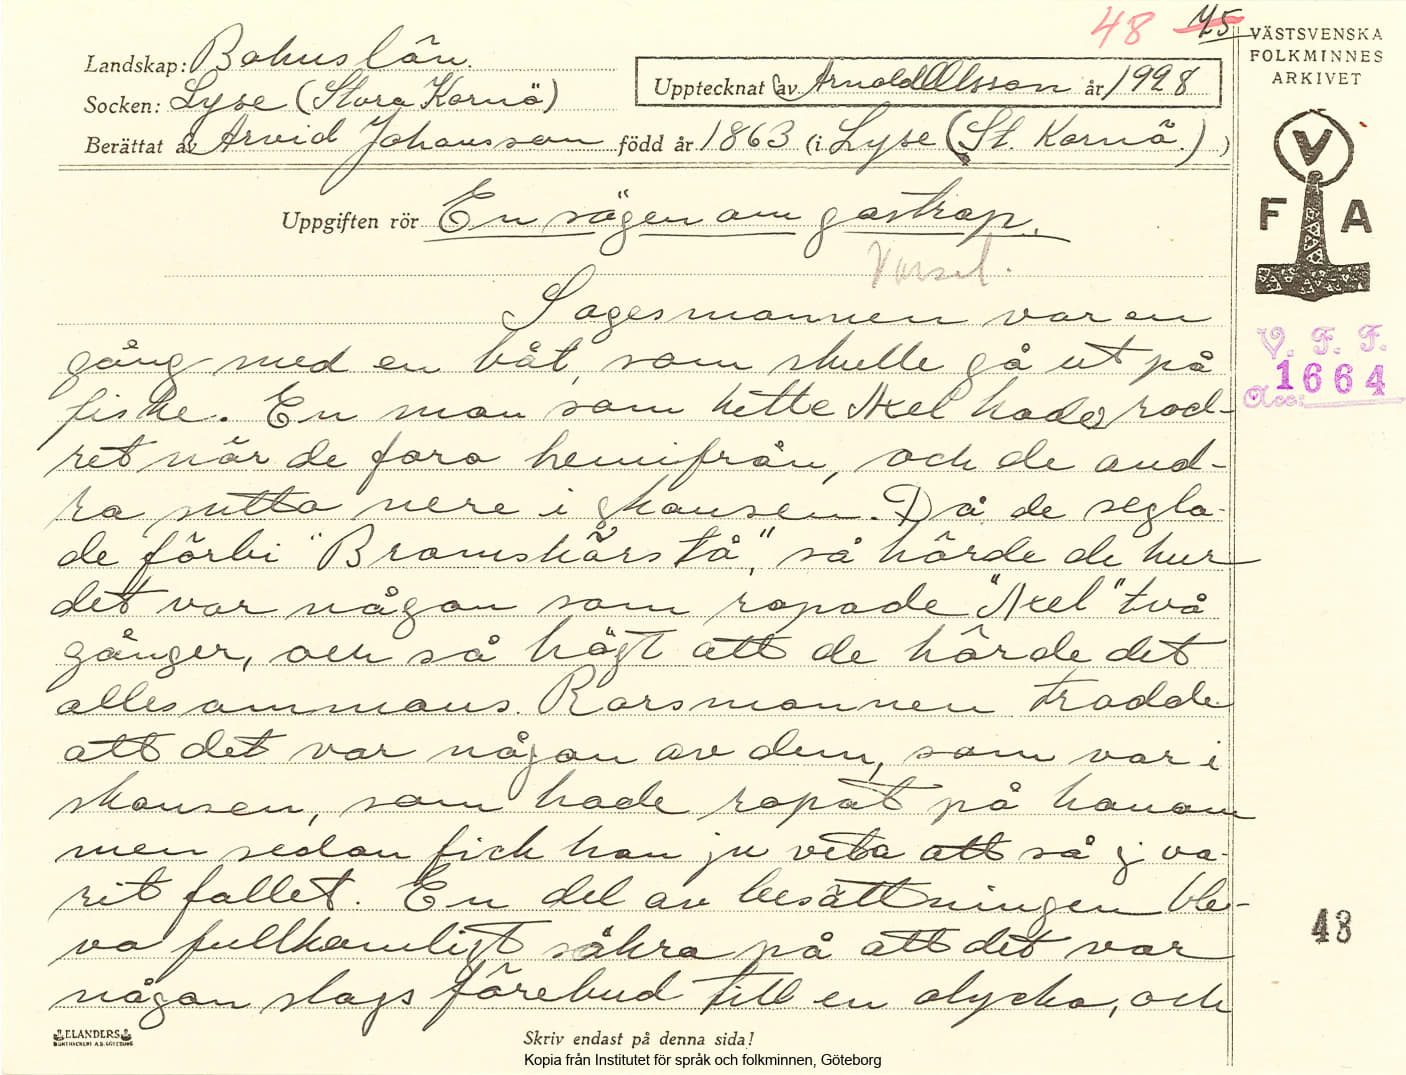 48 45
VÄSTSVENSKA
FOLKMINNES
ARKIVET
Landskap: Bohuslän.
Socken: Lyse (Stora Kornö)
Upptecknat av Arnold Olsson år 1928
Berättat av Arvid Johansson född år 1863 (i Lyse (St. Kornö.) )
Uppgiften rör En sägen om gastrop.
Varsel.
V
F A
V. F. F.
Acc: 1664
Sagesmannen var en
gång med en båt, som skulle gå ut på
fiske. En man som hette Axel hade rod-
ret när de foro hemifrån, och de and-
ra sutto nere i skansen. Då de segla-
de förbi "Bramskärs tå," så hörde de hur
det var någon som ropade "Axel" två
gånger, och så högt att de hörde det
allesammans. Rorsmannen trodde
att det var någon av dem, som var i
skansen, som hade ropat på honom
men sedan fick han ju veta att så ej va-
rit fallet. En del av besättningen ble-
vo fullkomligt säkra på att det var
någon slags förebud till en olycka, och
43
ELANDERS
BOKTRYCKERI A.B. GÖTEBORG
Skriv endast på denna sida!
Kopia från Institutet för språk och folkminnen, Göteborg